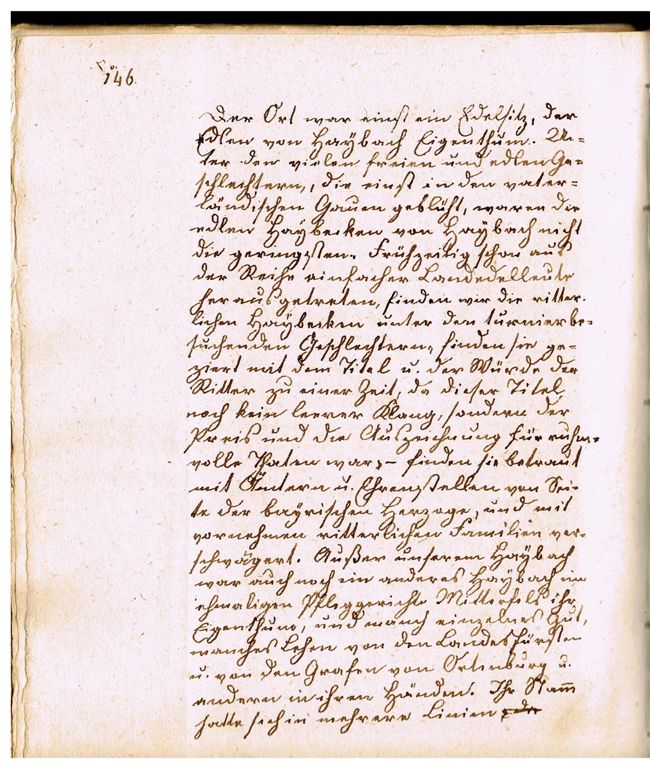 146.
Der Ort war einst ein Edelsitz, der
Edlen von Haybach Eigenthum. Un-
ter den vielen freien und edlen Ge-
schlechtern, die einst in den vater-
ländischen Gauen geblüht, waren die
edlen Haybecken von Haybach nicht
die geringsten. Frühzeitig schon aus
der Reihe einfacher Landedelleute
herausgetreten, finden wir die ritter-
lichen Haybecken unter den turnierbe-
suchenden Geschlechtern, finden sie ge-
ziert mit dem Titel u. der Würde der
Ritter zu einer Zeit, da dieser Titel
noch kein leerer Klang, sondern der
Preis und die Auszeichnung für ruhm-
volle Thaten war, – finden sie betraut
mit Ämtern u. Ehrenstellen von Sei-
te der bayrischen Herzoge, und mit
vornehmen ritterlichen Familien ver-
schwägert. Außer unserem Haybach
war auch noch ein anderes Haybach im
ehmaligen Pfleggerichte Mitterfels ihr
Eigenthum, und manch einzelnes Gut,
manches Lehen von den Landesfürsten
u. von den Grafen von Ortenburg u.
andern in ihren Händen. Ihr Stam̅
hatte sich in mehrere Linien